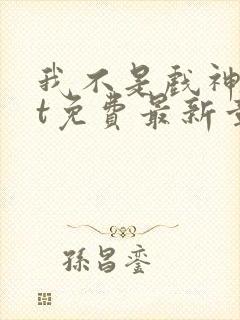 我不是戏神
t免费最新章
孫昌銮